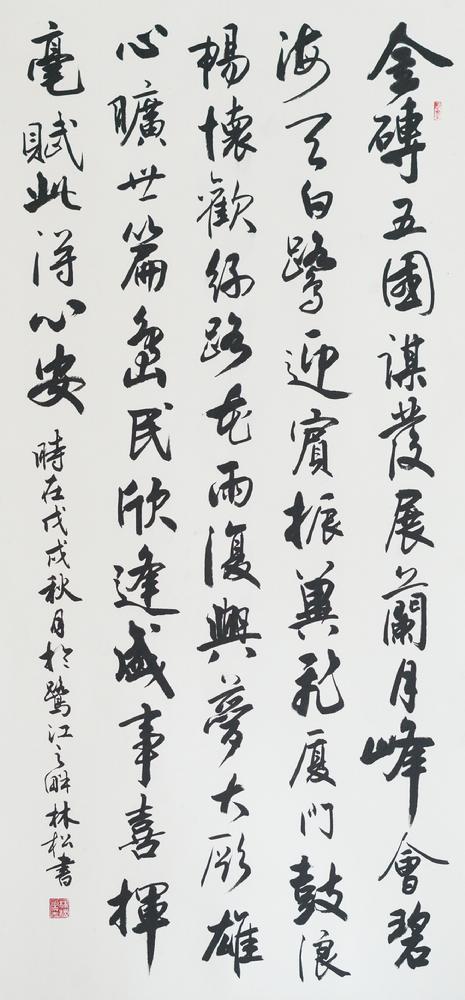 金磚五國謀發展蘭月峰會碧
海天白鷺迎賓振翼飛廈門鼓浪
揚懷歡絲路花雨復興夢大願雄
心曠世篇島民欣逢盛事喜揮
毫賦此得心安
時在戊戌秋月於鷺江之畔林松書